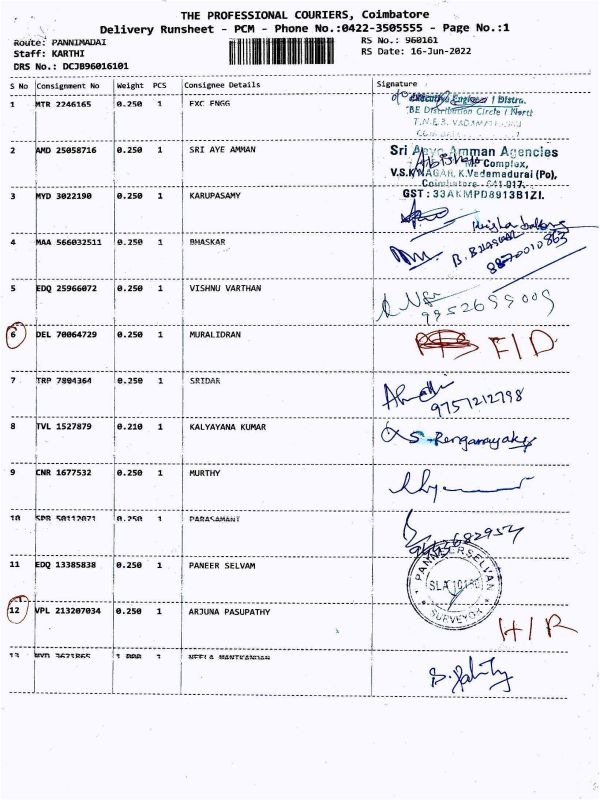 THE PROFESSIONAL COURIERS, Coimbatore
Delivery Runsheet - PCM - Phone No.:0422-3505555 - Page No.:1
Route: PANNIMADAI RS No.: 960161
Staff: KARTHI RS Date: 16-Jun-2022
DRS No.: DCJB96016101
S No Consignment No Weight PCS Consignee Details Signature
1 MTR 2246165 0.250 1 EXC ENGG
Executive Engineer / Distru.
BE Distribution Circle / North
2 AMD 25058716 0.250 1 SRI AYE AMMAN
Sri Amman Agencies
Complex,
V.S.K NAGAR, K.Vadamadurai (Po),
Coimbatore - 641 017.
3 MYD 3022190 0.250 1 KARUPASAMY
GST : 33AKMPD8913B1ZI.
4 MAA 566032511 0.250 1 BHASKAR
B. BHASKAR
8870010863
5 EDQ 25966072 0.250 1 VISHNU VARTHAN
9952699009
6 DEL 70064729 0.250 1 MURALIDRAN F/D
7 TRP 7804364 0.250 1 SRIDAR
9751212798
8 TVL 1527879 0.210 1 KALYAYANA KUMAR
S. Renganayaky
9 CNR 1677532 0.250 1 MURTHY
10 SPR 50112071 0.250 1 PARASAMANI
11 EDQ 13385838 0.250 1 PANEER SELVAM
PANNEERSELVAN
SURVEYOR
12 VPL 213207034 0.250 1 ARJUNA PASUPATHY H/R
13 MYD 3621865 1.000 1 NEELA MANIKANDAN